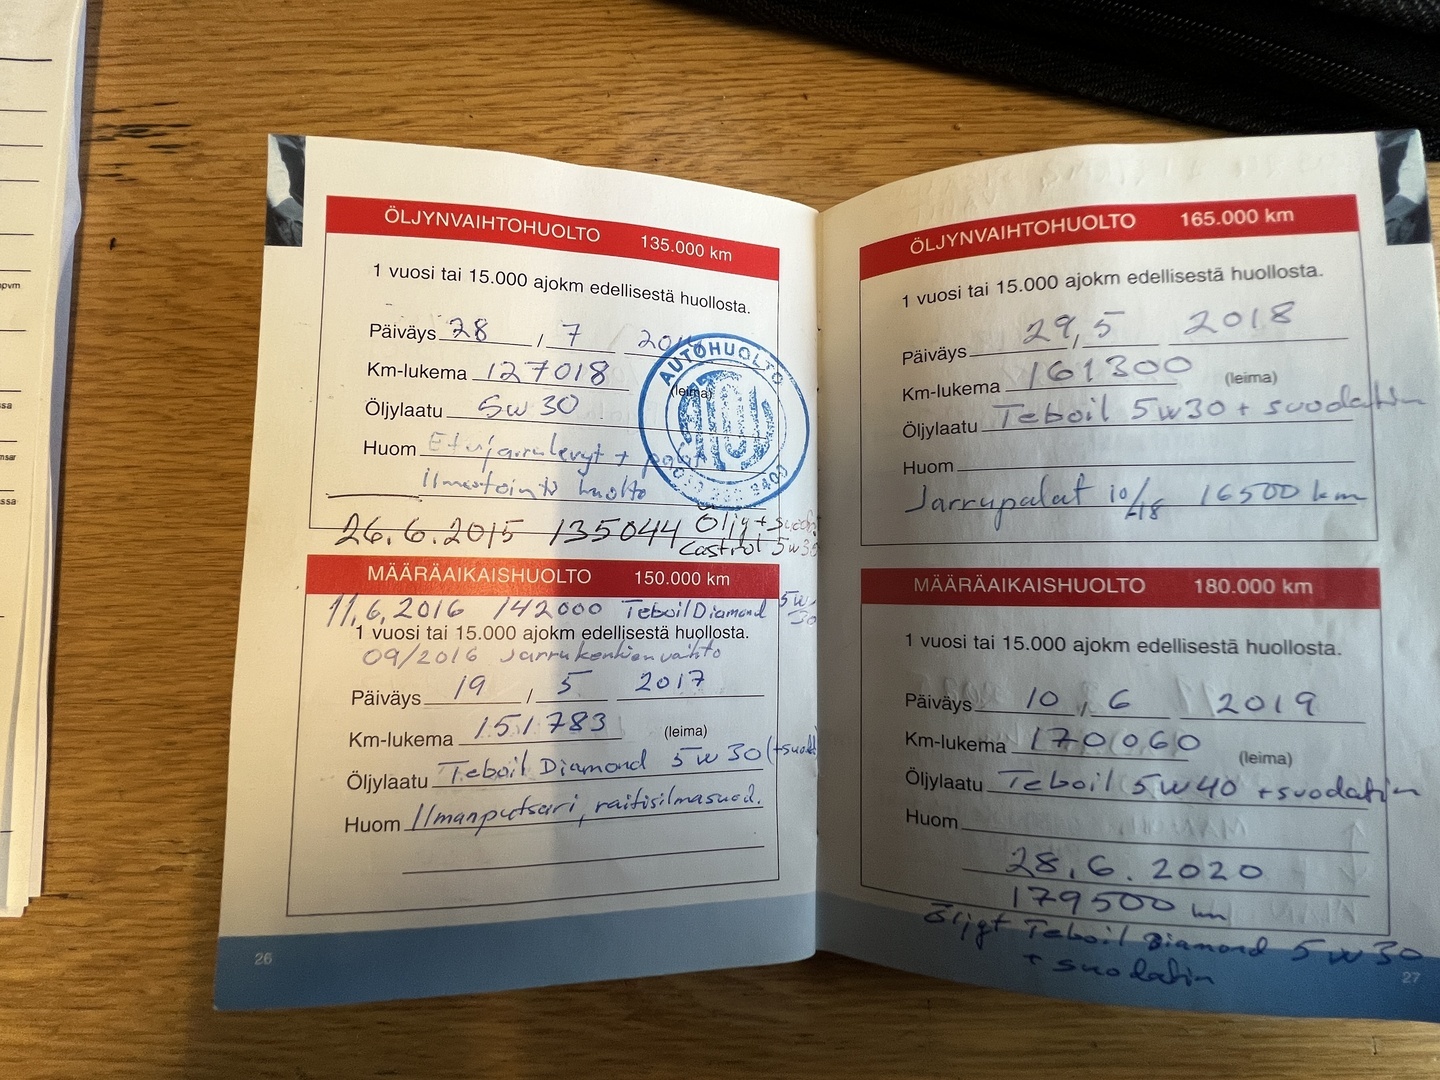 ÖLJYNVAIHTOHUOLTO 135.000 km
1 vuosi tai 15.000 ajokm edellisestä huollosta.
Päiväys 28 , 7
Km-lukema 127018 (leima)
AUTOHUOLTO
Öljylaatu 5w30
Huom Etujarrulevyt +
huolto
26.6.2015 135044 Öljy +
Castrol 5w30
MÄÄRÄAIKAISHUOLTO 150.000 km
11.6.2016 142000 Teboil Diamond 5w
30
1 vuosi tai 15.000 ajokm edellisestä huollosta.
09/2016 Jarrukenkien vaihto
Päiväys 19 , 5 2017
Km-lukema 151783 (leima)
Öljylaatu Teboil Diamond 5w30
Huom Ilmanputsari, raitisilmasuod.
26
ÖLJYNVAIHTOHUOLTO 165.000 km
1 vuosi tai 15.000 ajokm edellisestä huollosta.
Päiväys 29, 5 2018
Km-lukema 161300 (leima)
Öljylaatu Teboil 5w30 + suodatin
Huom
Jarrupalat 10/18 16500 km
MÄÄRÄAIKAISHUOLTO 180.000 km
1 vuosi tai 15.000 ajokm edellisestä huollosta.
Päiväys 10 , 6 2019
Km-lukema 170060 (leima)
Öljylaatu Teboil 5w40 + suodatin
Huom
28.6.2020
179500 km
Öljyt Teboil Diamond 5w30
+ suodatin
27